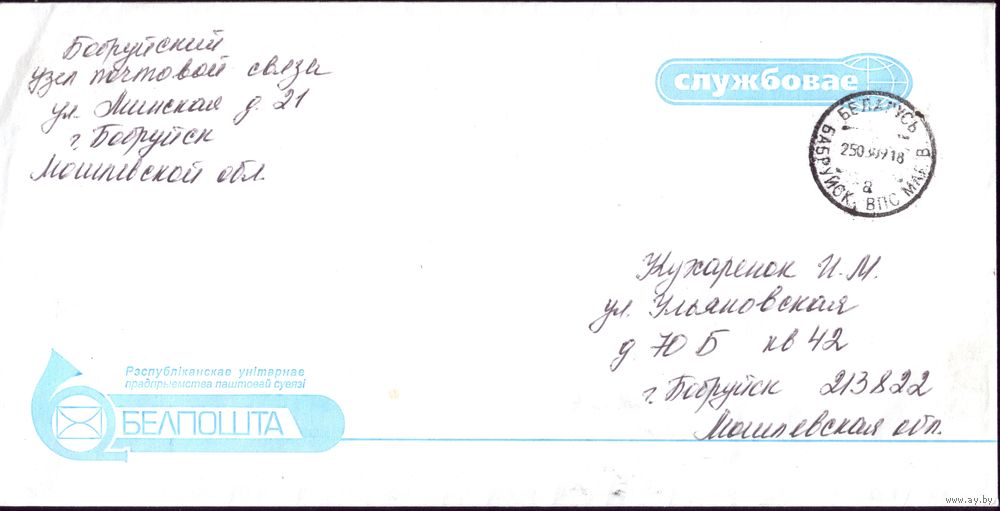 Бобруйский
узел почтовой связи
ул. Минская д. 21
г. Бобруйск
Могилевской обл.
службовае
БЕЛАРУСЬ
БАБРУЙСК ВПС МАГ В
250309 18
а
Кухаренок И.М.
ул. Ульяновская
д 70 Б кв 42
г. Бобруйск 213822
Могилевская обл.
Рэспубліканскае унітарнае
прадпрыемства паштовай сувязі
БЕЛПОШТА
www.ay.by